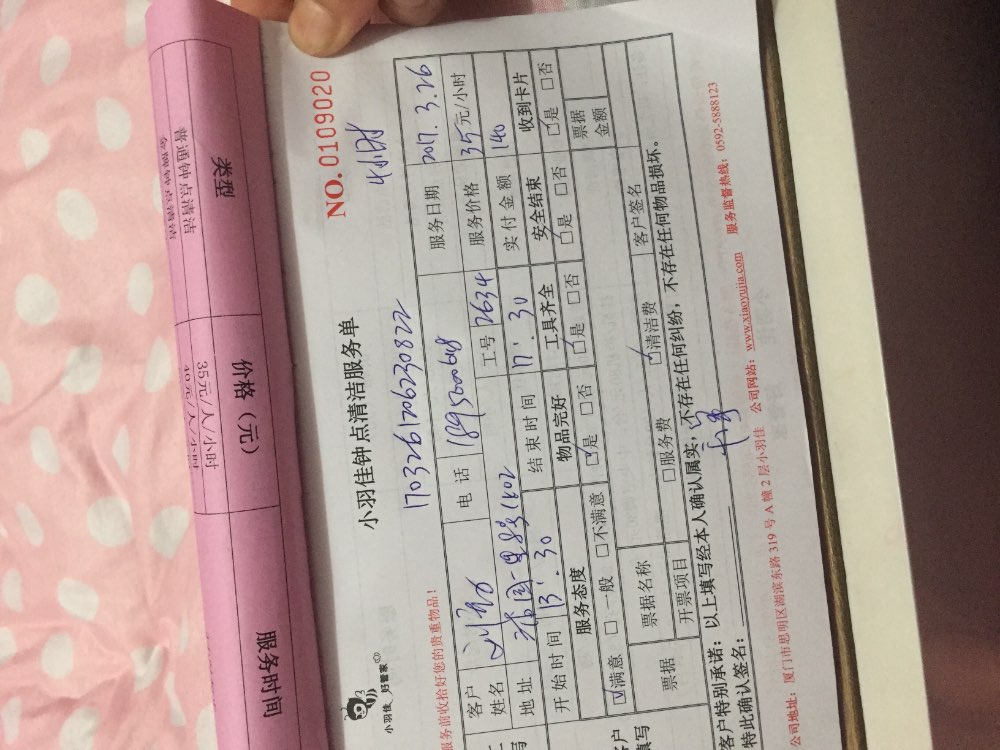 类型
价格（元）
服务时间
普通钟点清洁
35元/人/小时
NO. 0109020
4小时
小羽佳钟点清洁服务单
1703261706230822
小羽佳 好管家
服务前收拾好您的贵重物品！
客户姓名
电话
服务日期 2017.3.26
地址
工号 2634
服务价格 35元/小时
开始时间 13:30
结束时间 17:30
实付金额 140
服务态度
物品完好
工具齐全
安全结束
收到卡片
☑满意 □一般 □不满意
☑是 □否
☑是 □否
☑是 □否
☑是 □否
票据
票据名称
客户签名
票据金额
开票项目
□服务费
☑清洁费
客户特别承诺：以上填写经本人确认属实，不存在任何纠纷，不存在任何物品损坏。
特此确认签名：
公司地址：厦门市思明区湖滨东路 319 号 A 幢 2 层小羽佳 公司网站：www.xiaoyujia.com 服务监督热线：0592-5888123